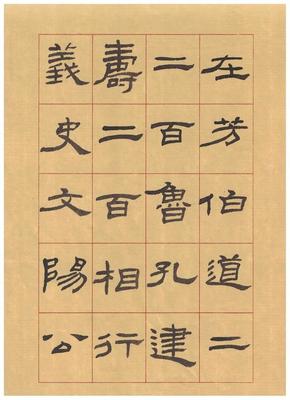 在芳伯道二
二百魯孔建
壽二百相行
義史文陽公